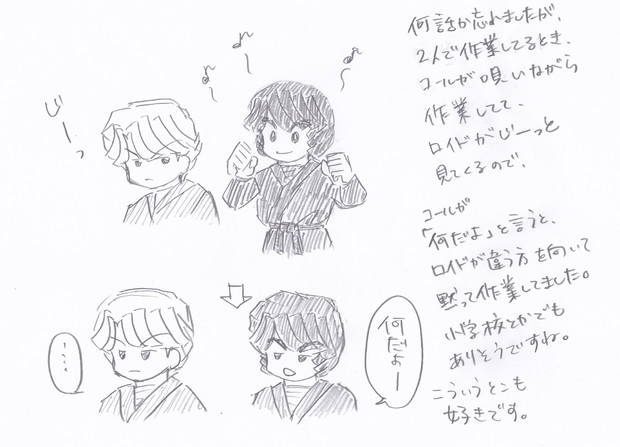 何話か忘れましたが、
2人で作業してるとき、
コールが唄いながら
作業してて、
ロイドがじーっと
見てくるので、
コールが
「何だよ」と言うと、
ロイドが違う方を向いて
黙って作業してました。
小学校とかでも
ありそうですね。
こういうとこも
好きです。
じーっ
何だよー
....